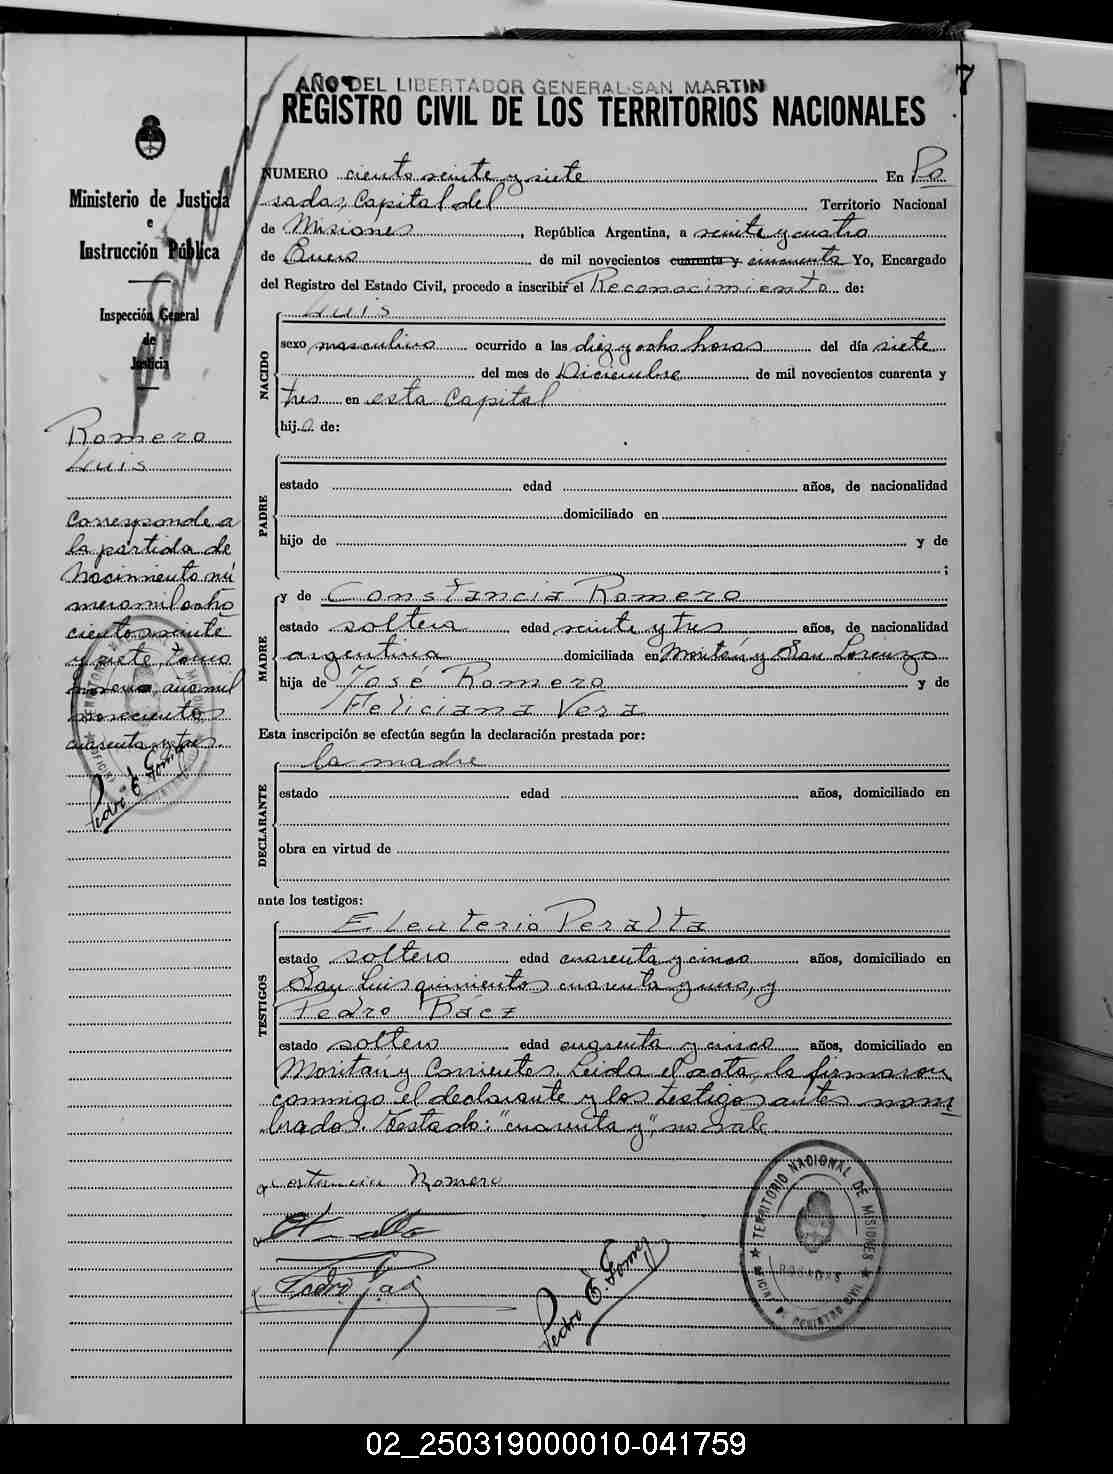 7
AÑO DEL LIBERTADOR GENERAL SAN MARTIN
REGISTRO CIVIL DE LOS TERRITORIOS NACIONALES
Ministerio de Justicia
e
Instrucción Pública
Inspección General
de
Justicia
Romero
Luis
Corresponde a
la partida de
Nacimiento nú
mero mil ocho
cientos veinte
y siete, tomo
noveno, año mil
novecientos
cuarenta y tres.
Pedro E. Gomez
NUMERO ciento veinte y siete En Po
sadas, Capital del Territorio Nacional
de Misiones, República Argentina, a veinte y cuatro
de Enero de mil novecientos cuarenta y cincuenta Yo, Encargado
del Registro del Estado Civil, procedo a inscribir el Reconocimiento de:
NACIDO
Luis
sexo masculino ocurrido a las diez y ocho horas del día siete
del mes de Diciembre de mil novecientos cuarenta y
tres en esta Capital
hijo de:
PADRE
estado edad años, de nacionalidad
domiciliado en
hijo de y de
;
MADRE
y de Constancia Romero
estado soltera edad veinte y tres años, de nacionalidad
argentina domiciliada en Moritán y San Lorenzo
hija de José Romero y de
Feliciana Vera
Esta inscripción se efectúa según la declaración prestada por:
DECLARANTE
la madre
estado edad años, domiciliado en
obra en virtud de
ante los testigos:
TESTIGOS
Eleuterio Peralta
estado soltero edad cuarenta y cinco años, domiciliado en
San Luis quinientos cuarenta y uno, y
Pedro Báez
estado soltero edad cuarenta y cinco años, domiciliado en
Moritán y Corrientes. Leida el acta, la firmaron
conmigo el declarante y los testigos antes nom
brados. Testado: "cuarenta y", no vale.
Costancia Romero
Pedro E. Gomez
TERRITORIO NACIONAL DE MISIONES
POSADAS
REGISTRO CIVIL
02_250319000010-041759